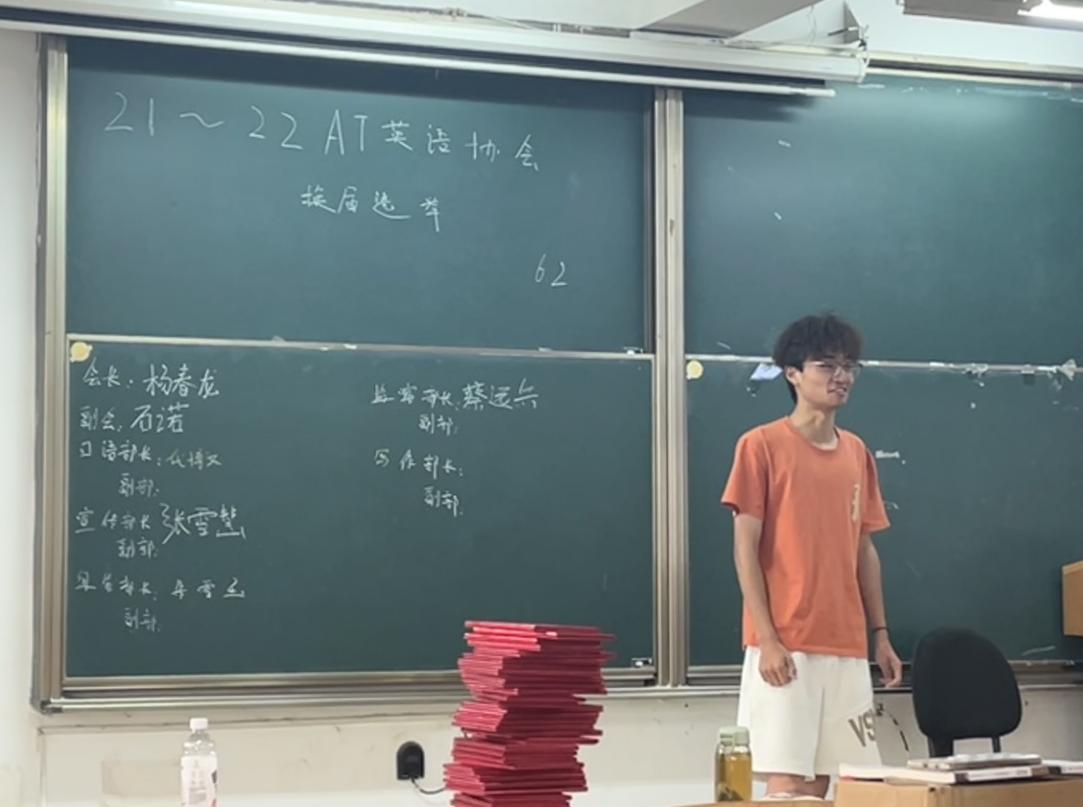 21～22 AT英语协会
换届选举
62
会长：杨春龙
副会：石诺
口语部长：代博文
副部：
宣传部长 张雪慧
副部：
副部：
监察部长：蔡远兵
副部：
写作部长：
副部：
VS